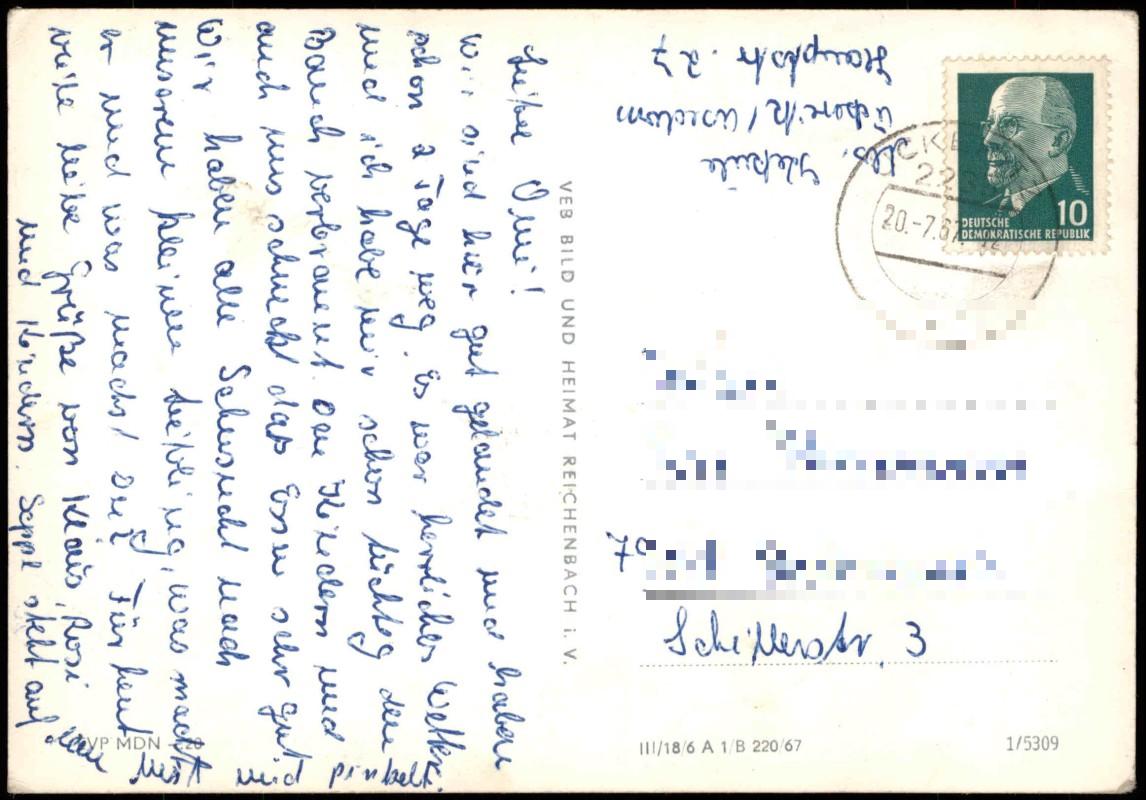 Liebe Omi!
Wir sind hier gut gelandet und haben
schon 2 Tage weg. Es war herrliches Wetter
und ich habe mir schon tüchtig den
Bauch verbrannt. Den Kindern und
auch uns schmeckt das Essen sehr gut
Wir haben alle Sehnsucht nach
unserem kleinen Liebling, was macht
er und was machst Du? Für heut
viele liebe Grüße von Klaus, Rosi
und Kindern. Seppl steht auf
Mist und pinkelt.
VEB BILD UND HEIMAT REICHENBACH i. V.
EVP MDN 20
Hauptstr. 27
Ückeritz/Usedom
DEUTSCHE
DEMOKRATISCHE REPUBLIK
10
22
20.-7.67
70
Schillerstr. 3
III/18/6 A 1/B 220/67
1/5309